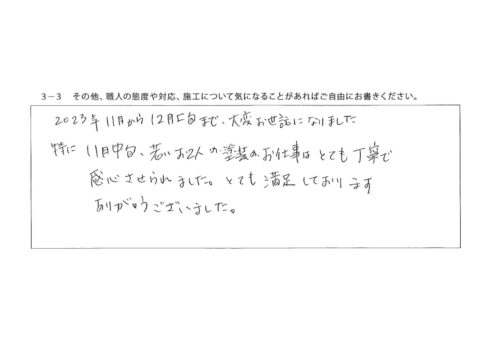 3－3　その他、職人の態度や対応、施工について気になることがあればご自由にお書きください。
2023年11月から12月上旬まで、大変お世話になりました
特に 11月中旬、若いお2人の塗装のお仕事はとても丁寧で
感心させられました。とても満足しております
ありがとうございました。